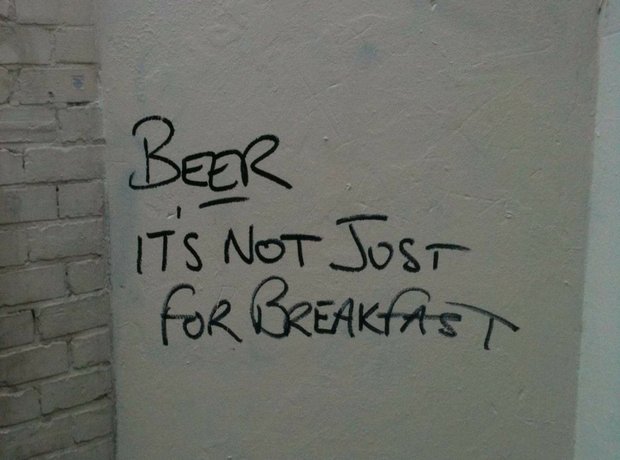 BEER
IT'S NOT JUST
FOR BREAKFAST